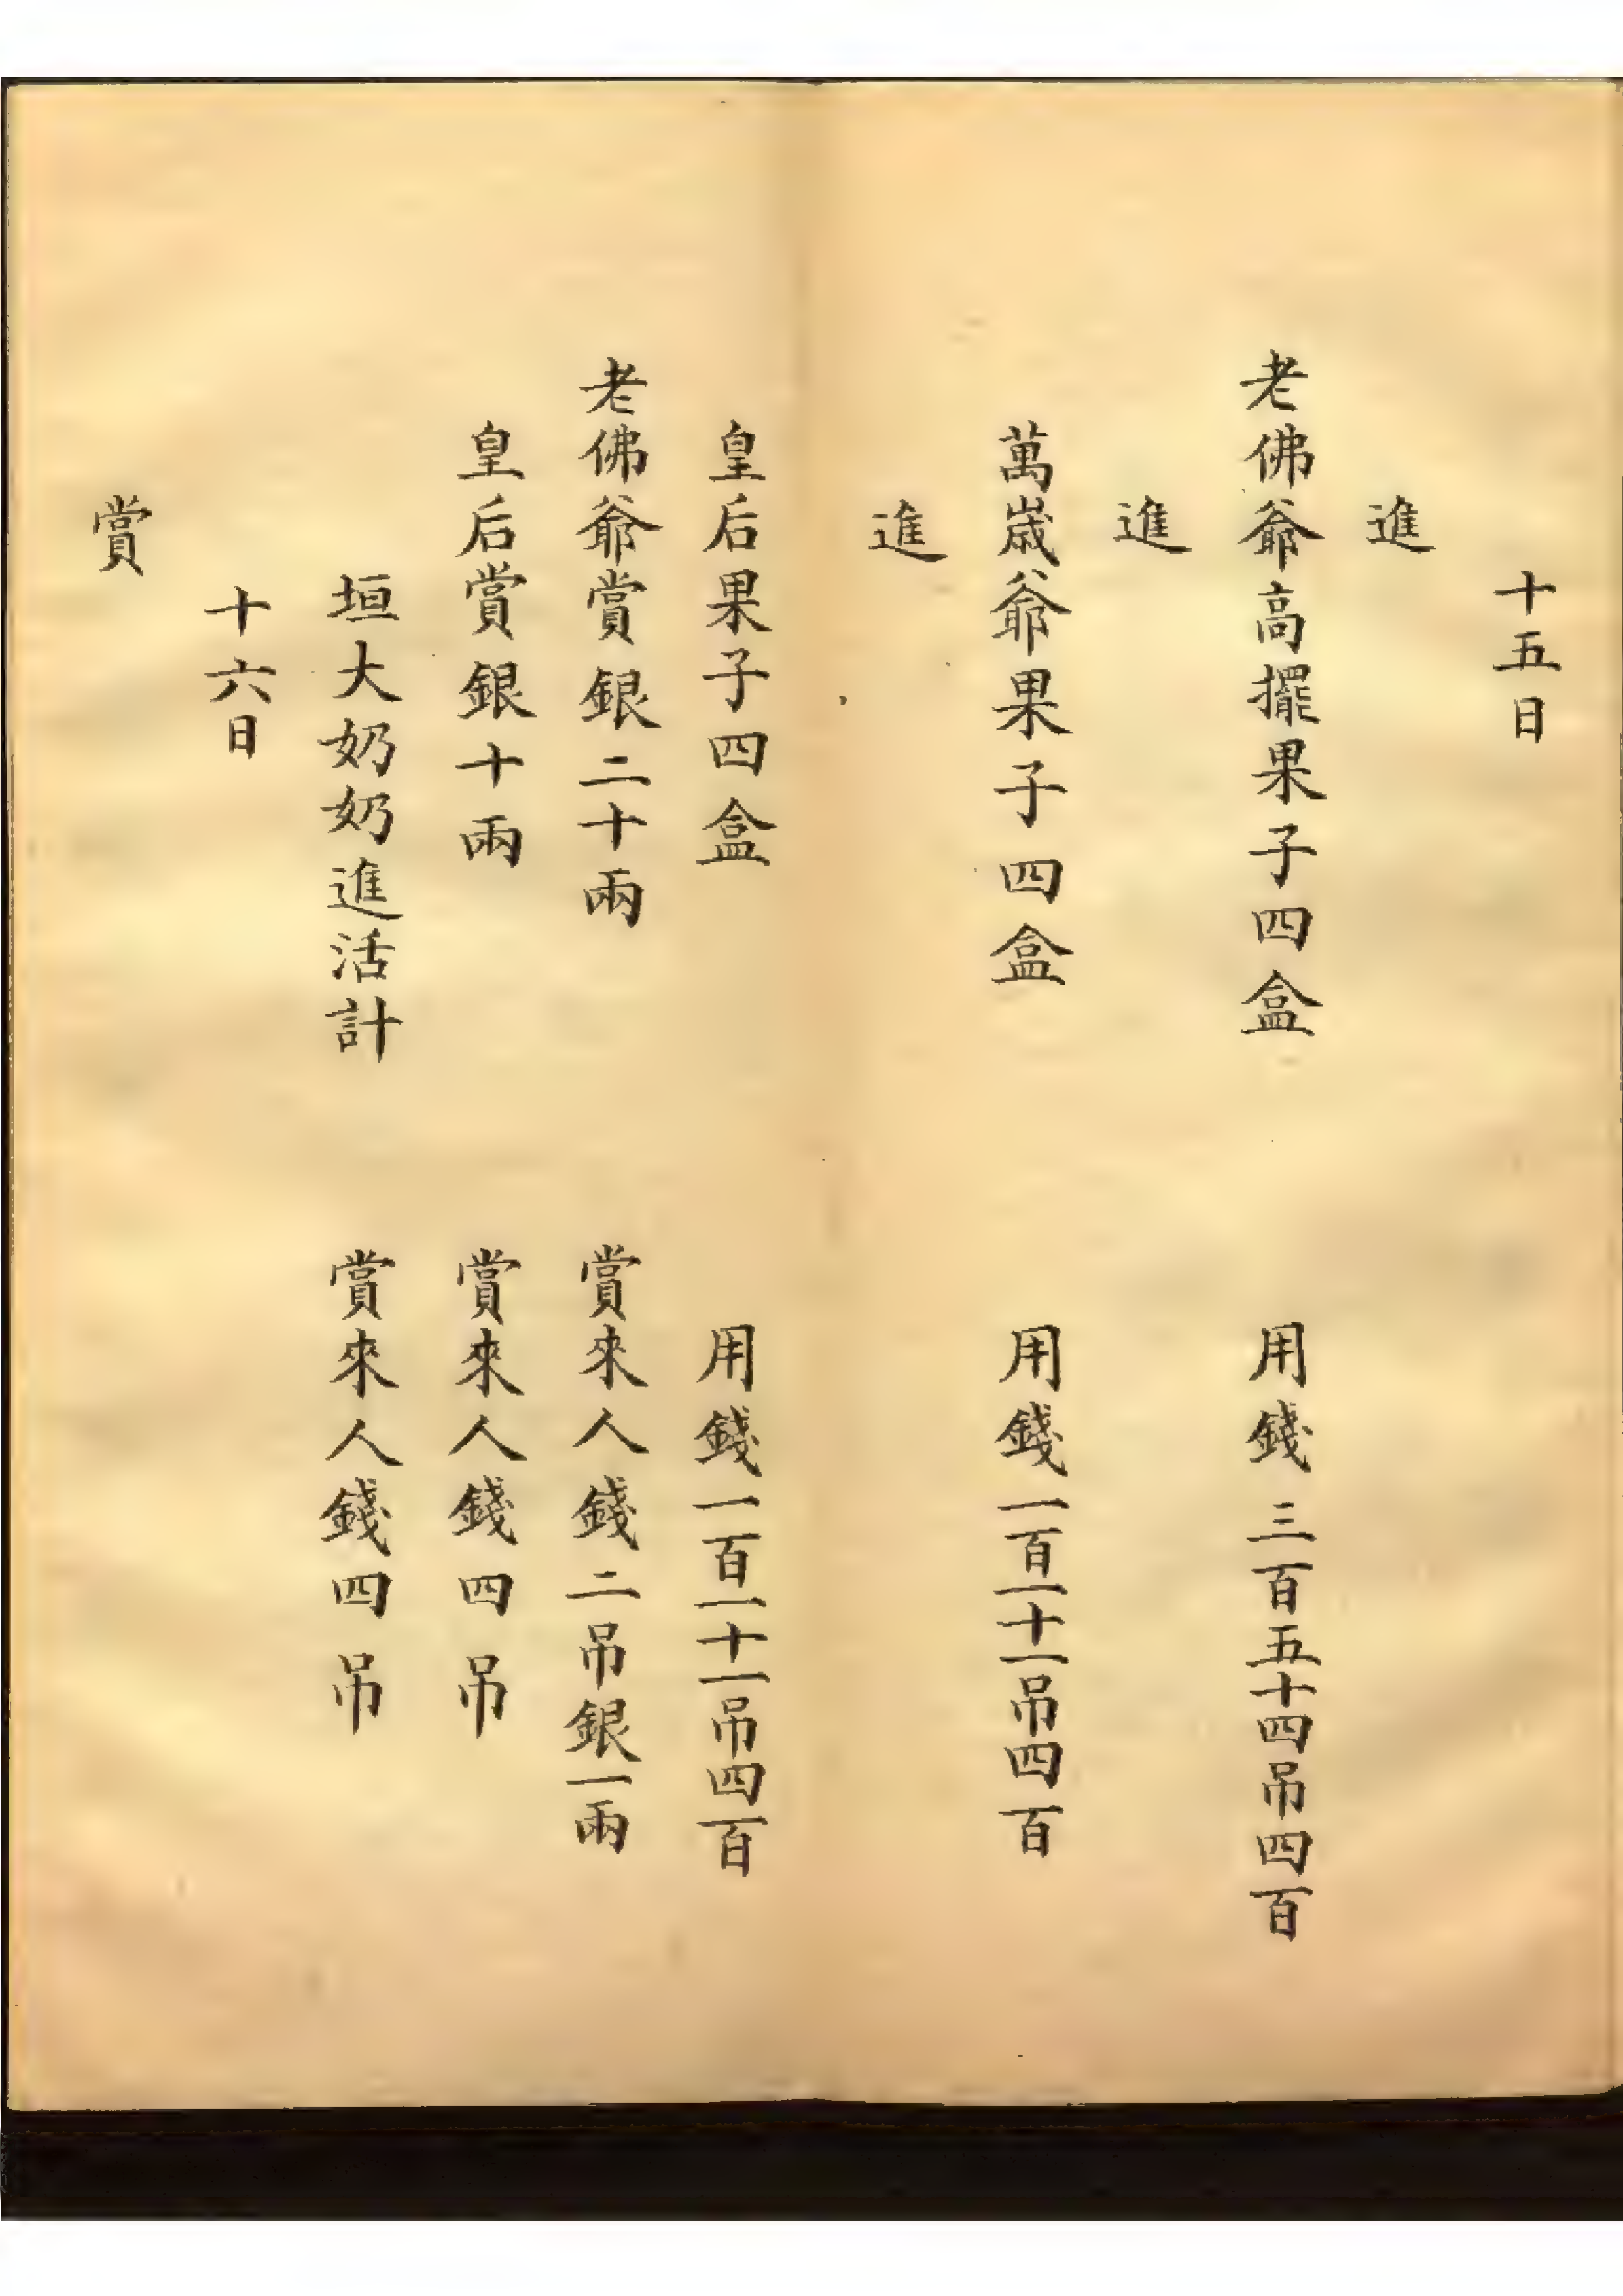 十五日
進
老佛爺高擺果子四盒 用錢三百五十四吊四百
進
萬歲爺果子四盒 用錢一百一十一吊四百
進
皇后果子四盒 用錢一百一十一吊四百
老佛爺賞銀二十兩 賞來人錢二吊銀一兩
皇后賞銀十兩 賞來人錢四吊
垣大奶奶進活計 賞來人錢四吊
十六日
賞